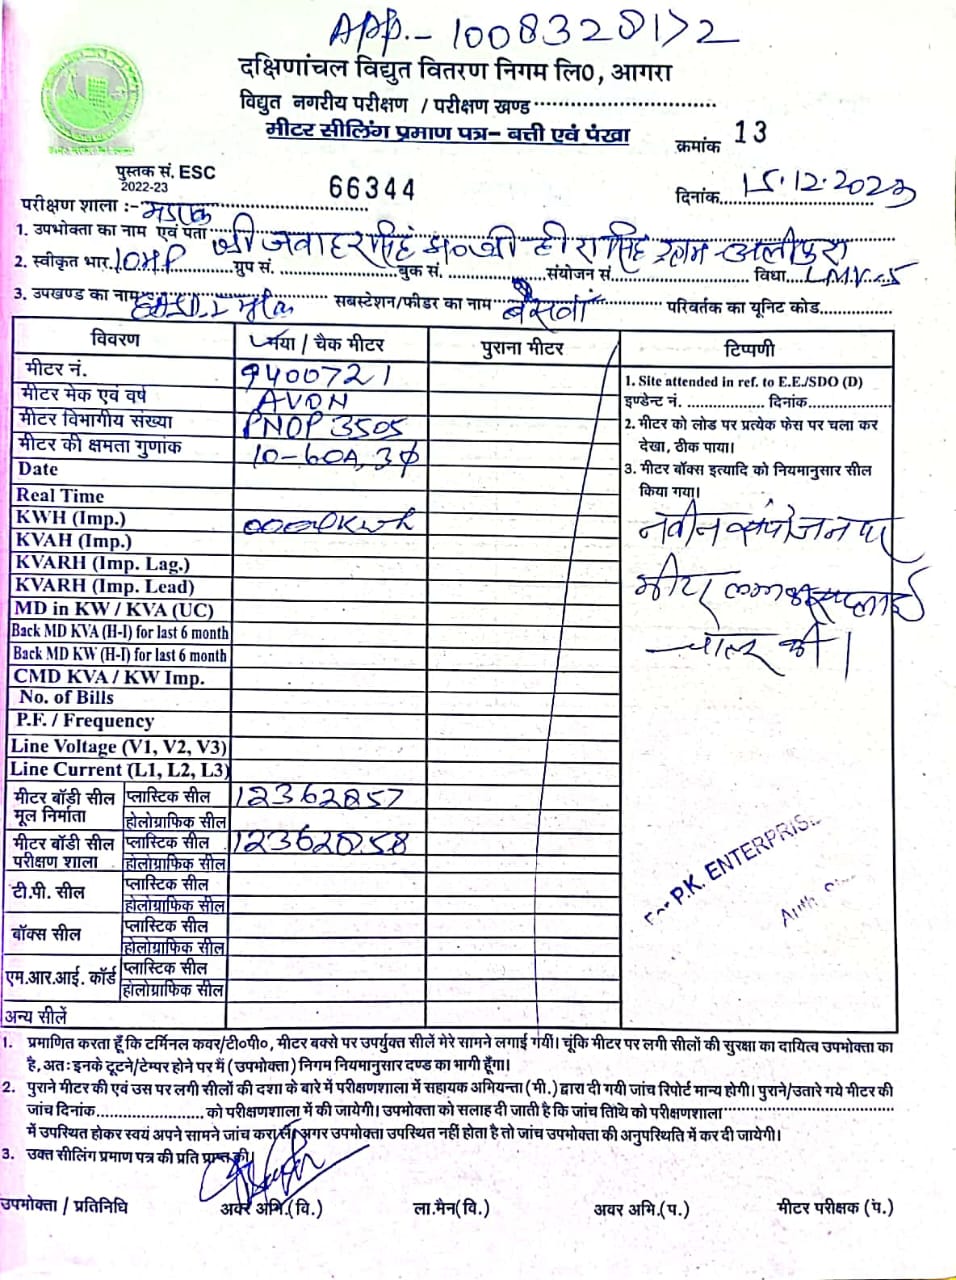 APP.- 1008320172
दक्षिणांचल विद्युत वितरण निगम लि0, आगरा
विद्युत नगरीय परीक्षण / परीक्षण खण्ड
मीटर सीलिंग प्रमाण पत्र– बत्ती एवं पंखा
क्रमांक 13
पुस्तक सं. ESC
2022-23
66344
दिनांक 15.12.2023
परीक्षण शाला :-
1. उपभोक्ता का नाम एवं पता श्री जवाहर सिंह श्री हीरा सिंह ग्राम-अलीपुरा
2. स्वीकृत भार 10HP ग्रुप सं. बुक सं. संयोजन सं. विधा LMV-5
3. उपखण्ड का नाम सबस्टेशन/फीडर का नाम बैसवां परिवर्तक का यूनिट कोड
विवरण नया / चैक मीटर पुराना मीटर टिप्पणी
मीटर नं. 9400721
मीटर मेक एवं वर्ष AVON
मीटर विभागीय संख्या PNOP 3505
मीटर की क्षमता गुणांक 10-60A, 3Φ
Date
Real Time
KWH (Imp.) 0000KWh
KVAH (Imp.)
KVARH (Imp. Lag.)
KVARH (Imp. Lead)
MD in KW / KVA (UC)
Back MD KVA (H-I) for last 6 month
Back MD KW (H-I) for last 6 month
CMD KVA / KW Imp.
No. of Bills
P.F. / Frequency
Line Voltage (V1, V2, V3)
Line Current (L1, L2, L3)
मीटर बॉडी सील मूल निर्माता प्लास्टिक सील 12362857
होलोग्राफिक सील
मीटर बॉडी सील परीक्षण शाला प्लास्टिक सील 12362858
होलोग्राफिक सील
टी.पी. सील प्लास्टिक सील
होलोग्राफिक सील
बॉक्स सील प्लास्टिक सील
होलोग्राफिक सील
एम.आर.आई. कॉर्ड प्लास्टिक सील
होलोग्राफिक सील
अन्य सीलें
1. Site attended in ref. to E.E./SDO (D)
इण्डेन्ट नं. दिनांक
2. मीटर को लोड पर प्रत्येक फेस पर चला कर
देखा, ठीक पाया।
3. मीटर बॉक्स इत्यादि को नियमानुसार सील
किया गया।
नवीन संयोजन पर
मीटर लगाकर सप्लाई
चालू की।
For P.K. ENTERPRIS
Auth.
1. प्रमाणित करता हूँ कि टर्मिनल कवर/टी०पी०, मीटर बक्से पर उपर्युक्त सीलें मेरे सामने लगाई गयीं। चूंकि मीटर पर लगी सीलों की सुरक्षा का दायित्व उपभोक्ता का
है, अतः इनके टूटने/टेम्पर होने पर मैं (उपभोक्ता) निगम नियमानुसार दण्ड का भागी हूँगा।
2. पुराने मीटर की एवं उस पर लगी सीलों की दशा के बारे में परीक्षणशाला में सहायक अभियन्ता (मी.) द्वारा दी गयी जांच रिपोर्ट मान्य होगी। पुराने/उतारे गये मीटर की
जांच दिनांक को परीक्षणशाला में की जायेगी। उपभोक्ता को सलाह दी जाती है कि जांच तिथि को परीक्षणशाला
में उपस्थित होकर स्वयं अपने सामने जांच करा लें, अगर उपभोक्ता उपस्थित नहीं होता है तो जांच उपभोक्ता की अनुपस्थिति में कर दी जायेगी।
3. उक्त सीलिंग प्रमाण पत्र की प्रति प्राप्त की।
उपभोक्ता / प्रतिनिधि अवर अभि.(वि.) ला.मैन(वि.) अवर अभि.(प.) मीटर परीक्षक (प.)